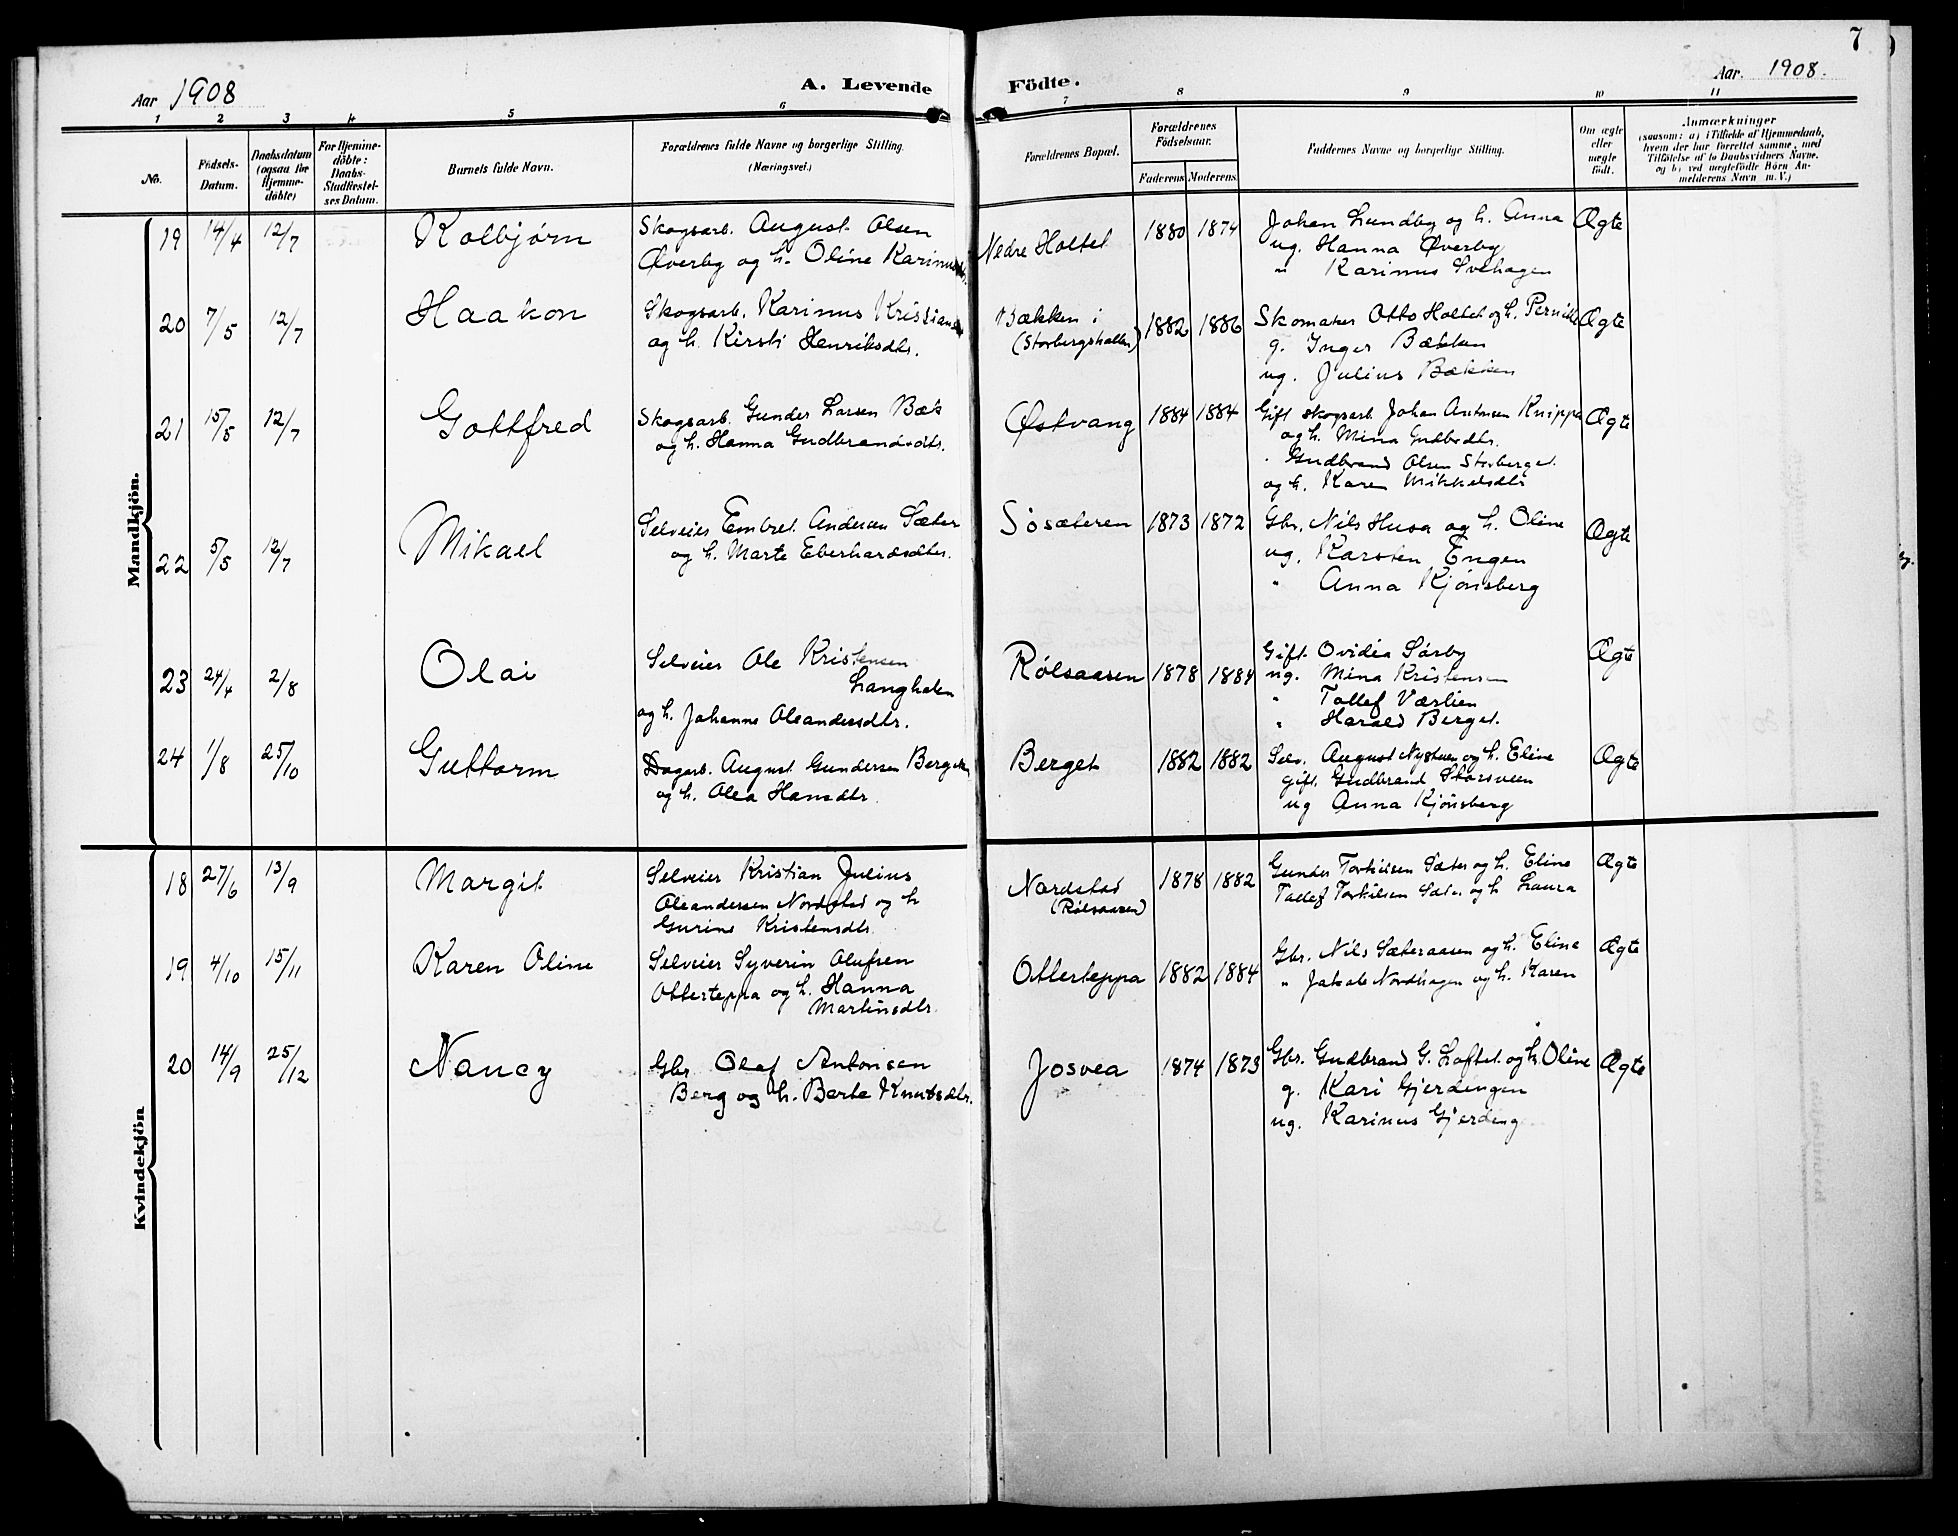 7
Aar 1908
A. Levende
Födte.
Aar. 1908.
1 2 3 4 5 6 7 8 9 10 11
No.
Födsels-
Datum.
Daabsdatum
(ogsaa for
Hjemme-
döbte)
For Hjemme-
döbte:
Daabs-
Stadfæstel-
ses Datum.
Barnets fulde Navn.
Forældrenes fulde Navne og borgerlige Stilling.
(Næringsvei.)
Forældrenes Bopæl.
Forældrenes
Födselsaar.
Faderens. Moderens.
Faddernes Navne og borgerlige Stilling.
Om ægte
eller
uægte
født.
Anmærkninger
(saasom: a) i Tilfælde af Hjemmedaab,
hvem der har forrettet samme, med
Tilføielse af to Daabsvidners Navne.
og b) ved uægtefødte Börn An-
melderens Navn m. V.)
Mandkjön.
19 14/4 12/7 Kolbjørn
Skogsarb. August Olsen
Øverby og h. Oline
Nedre Holtet 1880 1874
Johan Lundby og h. Anna
ug. Hanna Øverby
" Karinus Svehagen
Ægte
20 7/5 12/7 Haakon
Skogsarb. Karinus
og h. Kirsti Henriksdtr.
Bækken i
1882 1886
Skomaker Otto Holtet og h. Pernille
g. Inger Bækken
ug. Julius Bækken
Ægte
21 15/5 12/7 Gottfred
Skogsarb. Gunder Larsen Bæk
og h. Hanna Gudbrandsdtr.
Østvang 1884 1884
Gift skogsarb. Johan Antonsen Knippa
og h. Mina Gudbrdtr.
Gudbrand Olsen Storberget
og h. Karen Mikkelsdtr
Ægte
22 5/5 12/7 Mikael
Selveier Embret Andersen Sæter
og h. Marte Eberhardsdtr.
Søsæteren 1873 1872
Gbr. Nils Husa og h. Oline
ug. Karsten Engen
" Anna Kjønsberg
Ægte
23 24/4 2/8 Olai
Selveier Ole Kristensen
Langhalen
og h. Johanne Oleandersdtr.
Rølsaasen 1878 1884
Gift. Ovidia Sørby
ug. Mina Kristensen
" Tollef Værlien
" Harald Berget
Ægte
24 1/8 25/10 Guttorm
Dagarb. August Gundersen Berget
og h. Olea Hansdtr.
Berget 1882 1882
Selv. August Nystuen og h. Eline
gift. Gudbrand Storsveen
ug Anna Kjønsberg
Ægte
Kvindekjön
18 27/6 13/9 Margit
Selveier Kristian Julius
Oleandersen Nordstad og h
Gurine Kristensdtr.
Nordstad
(Rølsaasen)
1878 1882
Gunder Torkilsen Sæter og h. Eline
Tollef Torkilsen Sæter og h Laura
Ægte
19 4/10 15/11 Karen Oline
Selveier Syverin Olufsen
Otterteppa og h. Hanna
Martinsdtr.
Otterteppa 1882 1884
Gbr. Nils Sæteraasen og h. Eline
" Jakob Nordhagen og h. Karen
Ægte
20 14/9 25/12 Nancy
Gbr. Olaf Antonsen
Berg og h. Berte Knutsdtr.
Josvea 1874 1873
Gbr. Gudbrand G. Loftet og h. Oline
g. Kari Gjerdingen
ug. Karinus Gjerding
Ægte